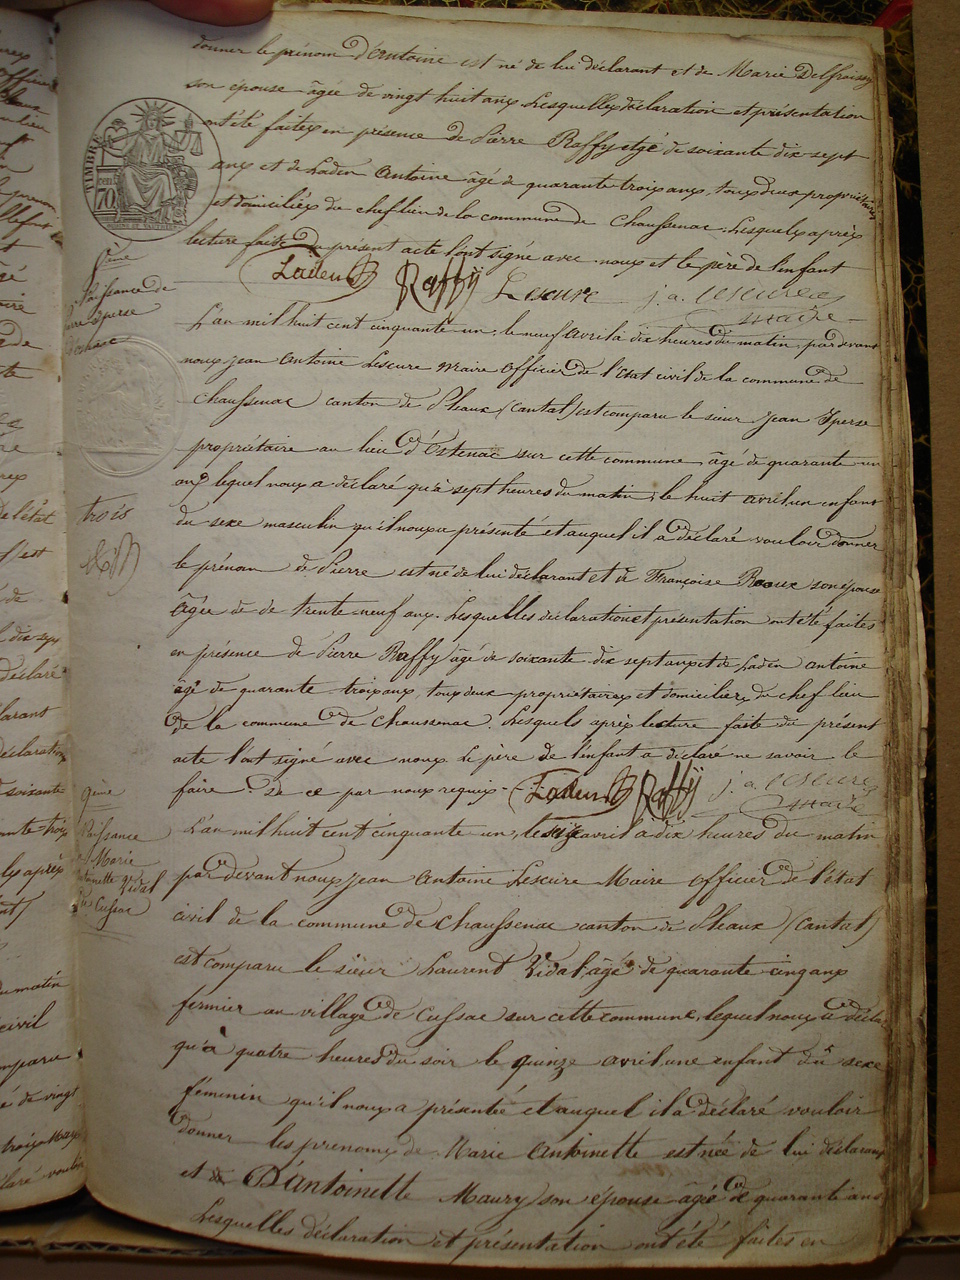 donner le prénom d'Antoine est né de lui déclarant et de Marie Delfraissy
son épouse âgée de vingt huit ans. Lesquelles déclaration et présentation
ont été faites en présence de Pierre Raffy âgé de soixante dix sept
ans et de Laden Antoine âgé de quarante trois ans, tous deux propriétaires
et domiciliés du chef lieu de la commune de Chaussenac. Lesquels après
lecture faite du présent acte l'ont signé avec nous et le père de l'enfant
TIMBRE
70
Laden Raffÿ Lescure j. a. lescure
maire
8ème
Naissance de
Pierre Yperse
L'an mil huit cent cinquante un, le neuf avril à dix heures du matin, pardevant
nous jean Antoine Lescure Maire officier de l'état civil de la commune de
Chaussenac canton de Pleaux (Cantal) est comparu le sieur jean Yperse
propriétaire au lieu d'Ostenac sur cette commune, âgé de quarante un
ans lequel nous a déclaré qu'à sept heures du matin, le huit avril un enfant
du sexe masculin qu'il nous a présenté et auquel il a déclaré vouloir donner
le prénom de Pierre est né de lui déclarant et de Françoise Roux son épouse
âgée de de trente neuf ans. Lesquelles déclaration et présentation ont été faites
en présence de Pierre Raffy âgé de soixante dix sept ans et de Laden antoine
âgé de quarante trois ans, tous deux propriétaires et domiciliés du chef lieu
de la commune de Chaussenac. Lesquels après lecture faite du présent
acte l'ont signé avec nous. Le père de l'enfant a déclaré ne savoir le
faire. De ce par nous requis. Laden Raffÿ j. a. lescure
maire
trois
9ème
Naissance
de Marie
Antoinette Vidal
de Cussac
L'an mil huit cent cinquante un, le seize avril à dix heures du matin
par devant nous jean Antoine Lescure Maire officier de l'état
civil de la commune de Chaussenac canton de Pleaux (Cantal)
est comparu le sieur Laurent Vidal âgé de quarante cinq ans
fermier au village de Cussac sur cette commune, lequel nous a décla
qu'à quatre heures du soir le quinze avril une enfant du sexe
féminin qu'il nous a présentée et auquel il a déclaré vouloir
donner les prenoms de Marie Antoinette est née de lui déclarant
et D'antoinette Maury son épouse âgée de quarante ans
Lesquelles déclaration et présentation ont été faites en